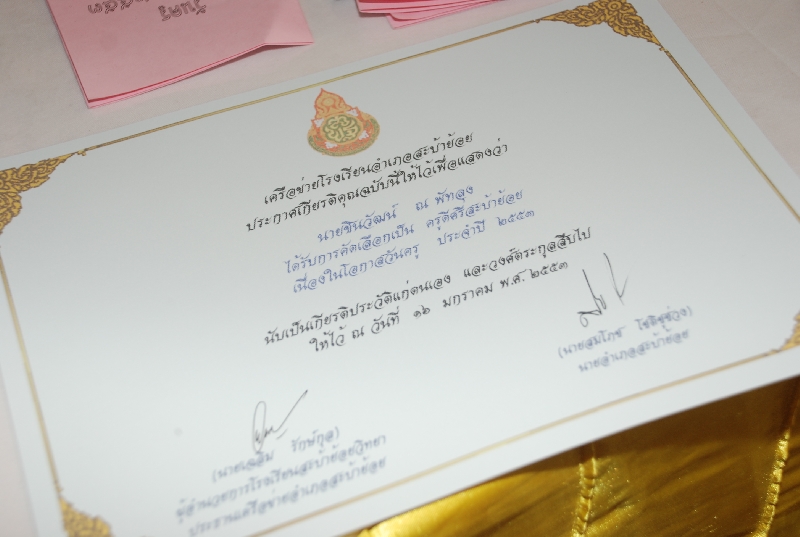 เครือข่ายโรงเรียนอำเภอสะบ้าย้อย
ประกาศเกียรติคุณฉบับนี้ให้ไว้เพื่อแสดงว่า
นายชินวัฒน์ ณ พัทลุง
ได้รับการคัดเลือกเป็น ครูดีศรีสะบ้าย้อย
เนื่องในโอกาสวันครู ประจำปี ๒๕๕๓
นับเป็นเกียรติประวัติแก่ตนเอง และวงศ์ตระกูลสืบไป
ให้ไว้ ณ วันที่ ๑๖ มกราคม พ.ศ. ๒๕๕๓
(นายสมโภช โชติชูช่วง)
นายอำเภอสะบ้าย้อย
(นายเฉลิม รักษ์กุล)
ผู้อำนวยการโรงเรียนสะบ้าย้อยวิทยา
ประธานเครือข่ายอำเภอสะบ้าย้อย